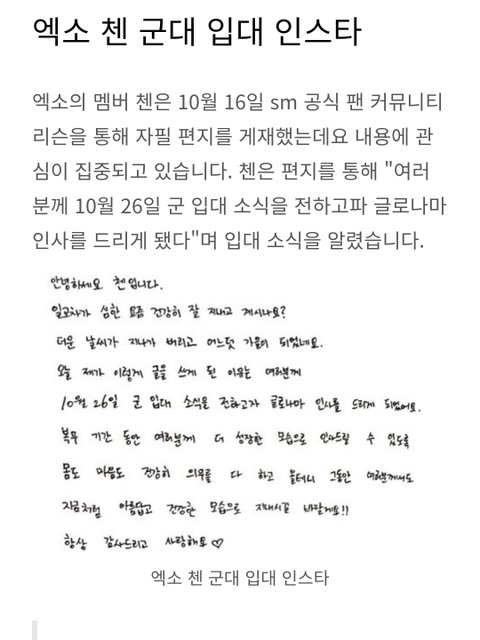 엑소 첸 군대 입대 인스타
엑소의 멤버 첸은 10월 16일 sm 공식 팬 커뮤니티
리슨을 통해 자필 편지를 게재했는데요 내용에 관
심이 집중되고 있습니다. 첸은 편지를 통해 "여러
분께 10월 26일 군 입대 소식을 전하고파 글로나마
인사를 드리게 됐다"며 입대 소식을 알렸습니다.
안녕하세요 첸입니다.
일교차가 심한 요즘 건강히 잘 지내고 계시나요?
더운 날씨가 지나가 버리고 어느덧 가을이 되었네요.
오늘 제가 이렇게 글을 쓰게 된 이유는 여러분께
10월 26일 군 입대 소식을 전하고자 글로나마 인사를 드리게 되었어요.
복무 기간 동안 여러분께 더 성장한 모습으로 인사드릴 수 있도록
몸도 마음도 건강히 의무를 다 하고 올테니 그동안 여러분께서도
지금처럼 아름답고 건강한 모습으로 지내시길 바랄게요!!
항상 감사드리고 사랑해요♡
엑소 첸 군대 입대 인스타